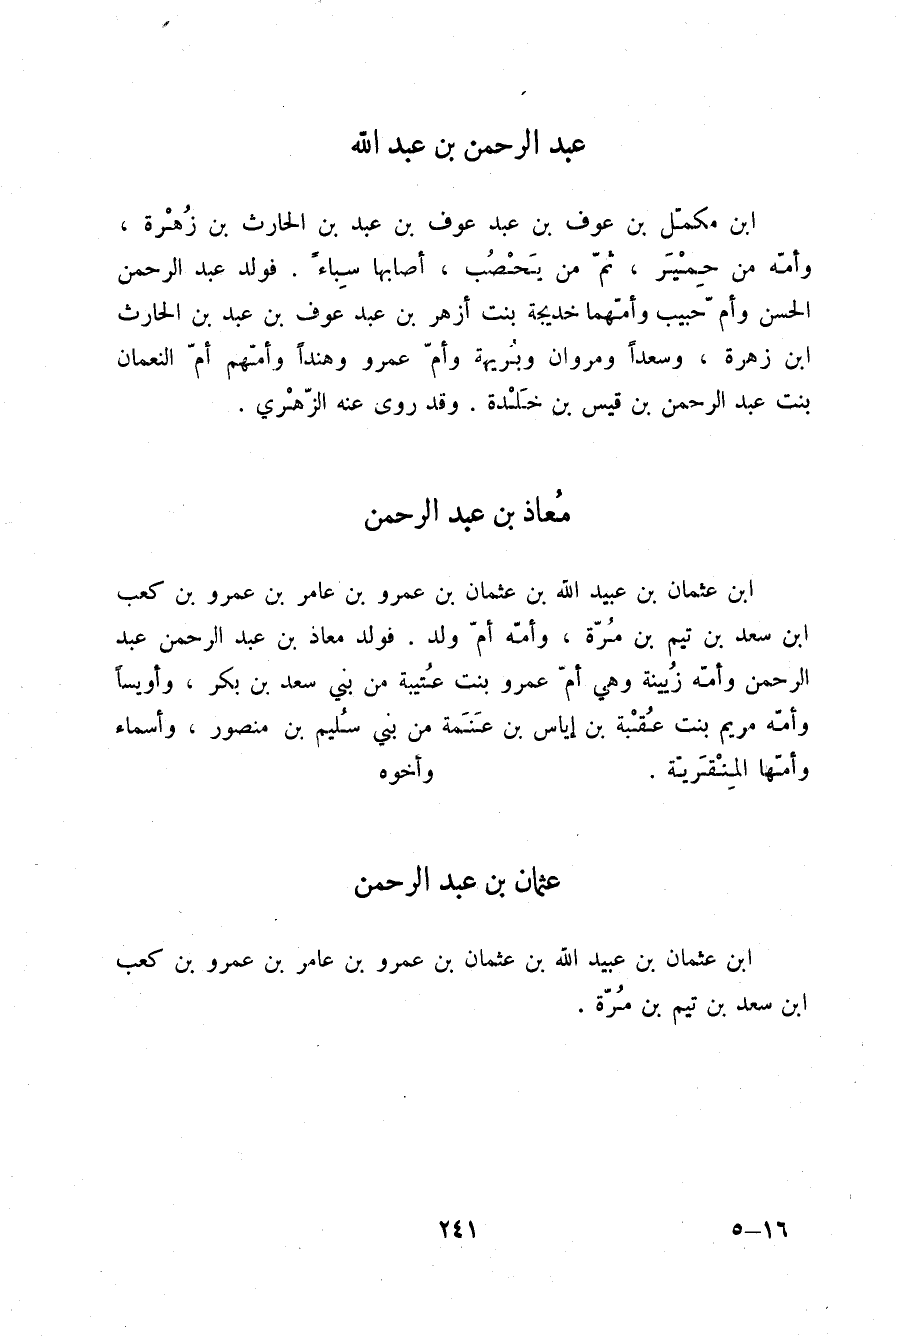 عبد الرحمن بن عبد الله
ابن مكمّل بن عوف بن عبد عوف بن عبد بن الحارث بن زُهْرة ،
وأمّه من حِمْيَر ، ثمّ من يَحْصُب ، أصابها سِباءً . فولد عبد الرحمن
الحسن وأم ّحبيب وأمّهما خديجة بنت أزهر بن عبد عوف بن عبد بن الحارث
ابن زهرة ، وسعداً ومروان وبُريهة وأمّ عمرو وهنداً وأمّهم أمّ النعمان
بنت عبد الرحمن بن قيس بن خَلْدة . وقد روى عنه الزّهْري .
مُعاذ بن عبد الرحمن
ابن عثمان بن عبيد الله بن عثمان بن عمرو بن عامر بن عمرو بن كعب
ابن سعد بن تيم بن مُرّة ، وأمّه أمّ ولد . فولد معاذ بن عبد الرحمن عبد
الرحمن وأمّه زُبينة وهي أمّ عمرو بنت عُتيبة من بني سعد بن بكر ، وأويساً
وأمّه مريم بنت عُقْبة بن إياس بن عَنَمة من بني سُليم بن منصور ، وأسماء
وأمّها المِنْقَريّة . وأخوه
عثمان بن عبد الرحمن
ابن عثمان بن عبيد الله بن عثمان بن عمرو بن عامر بن عمرو بن كعب
ابن سعد بن تيم بن مُرّة .
١٦–٥ ٢٤١